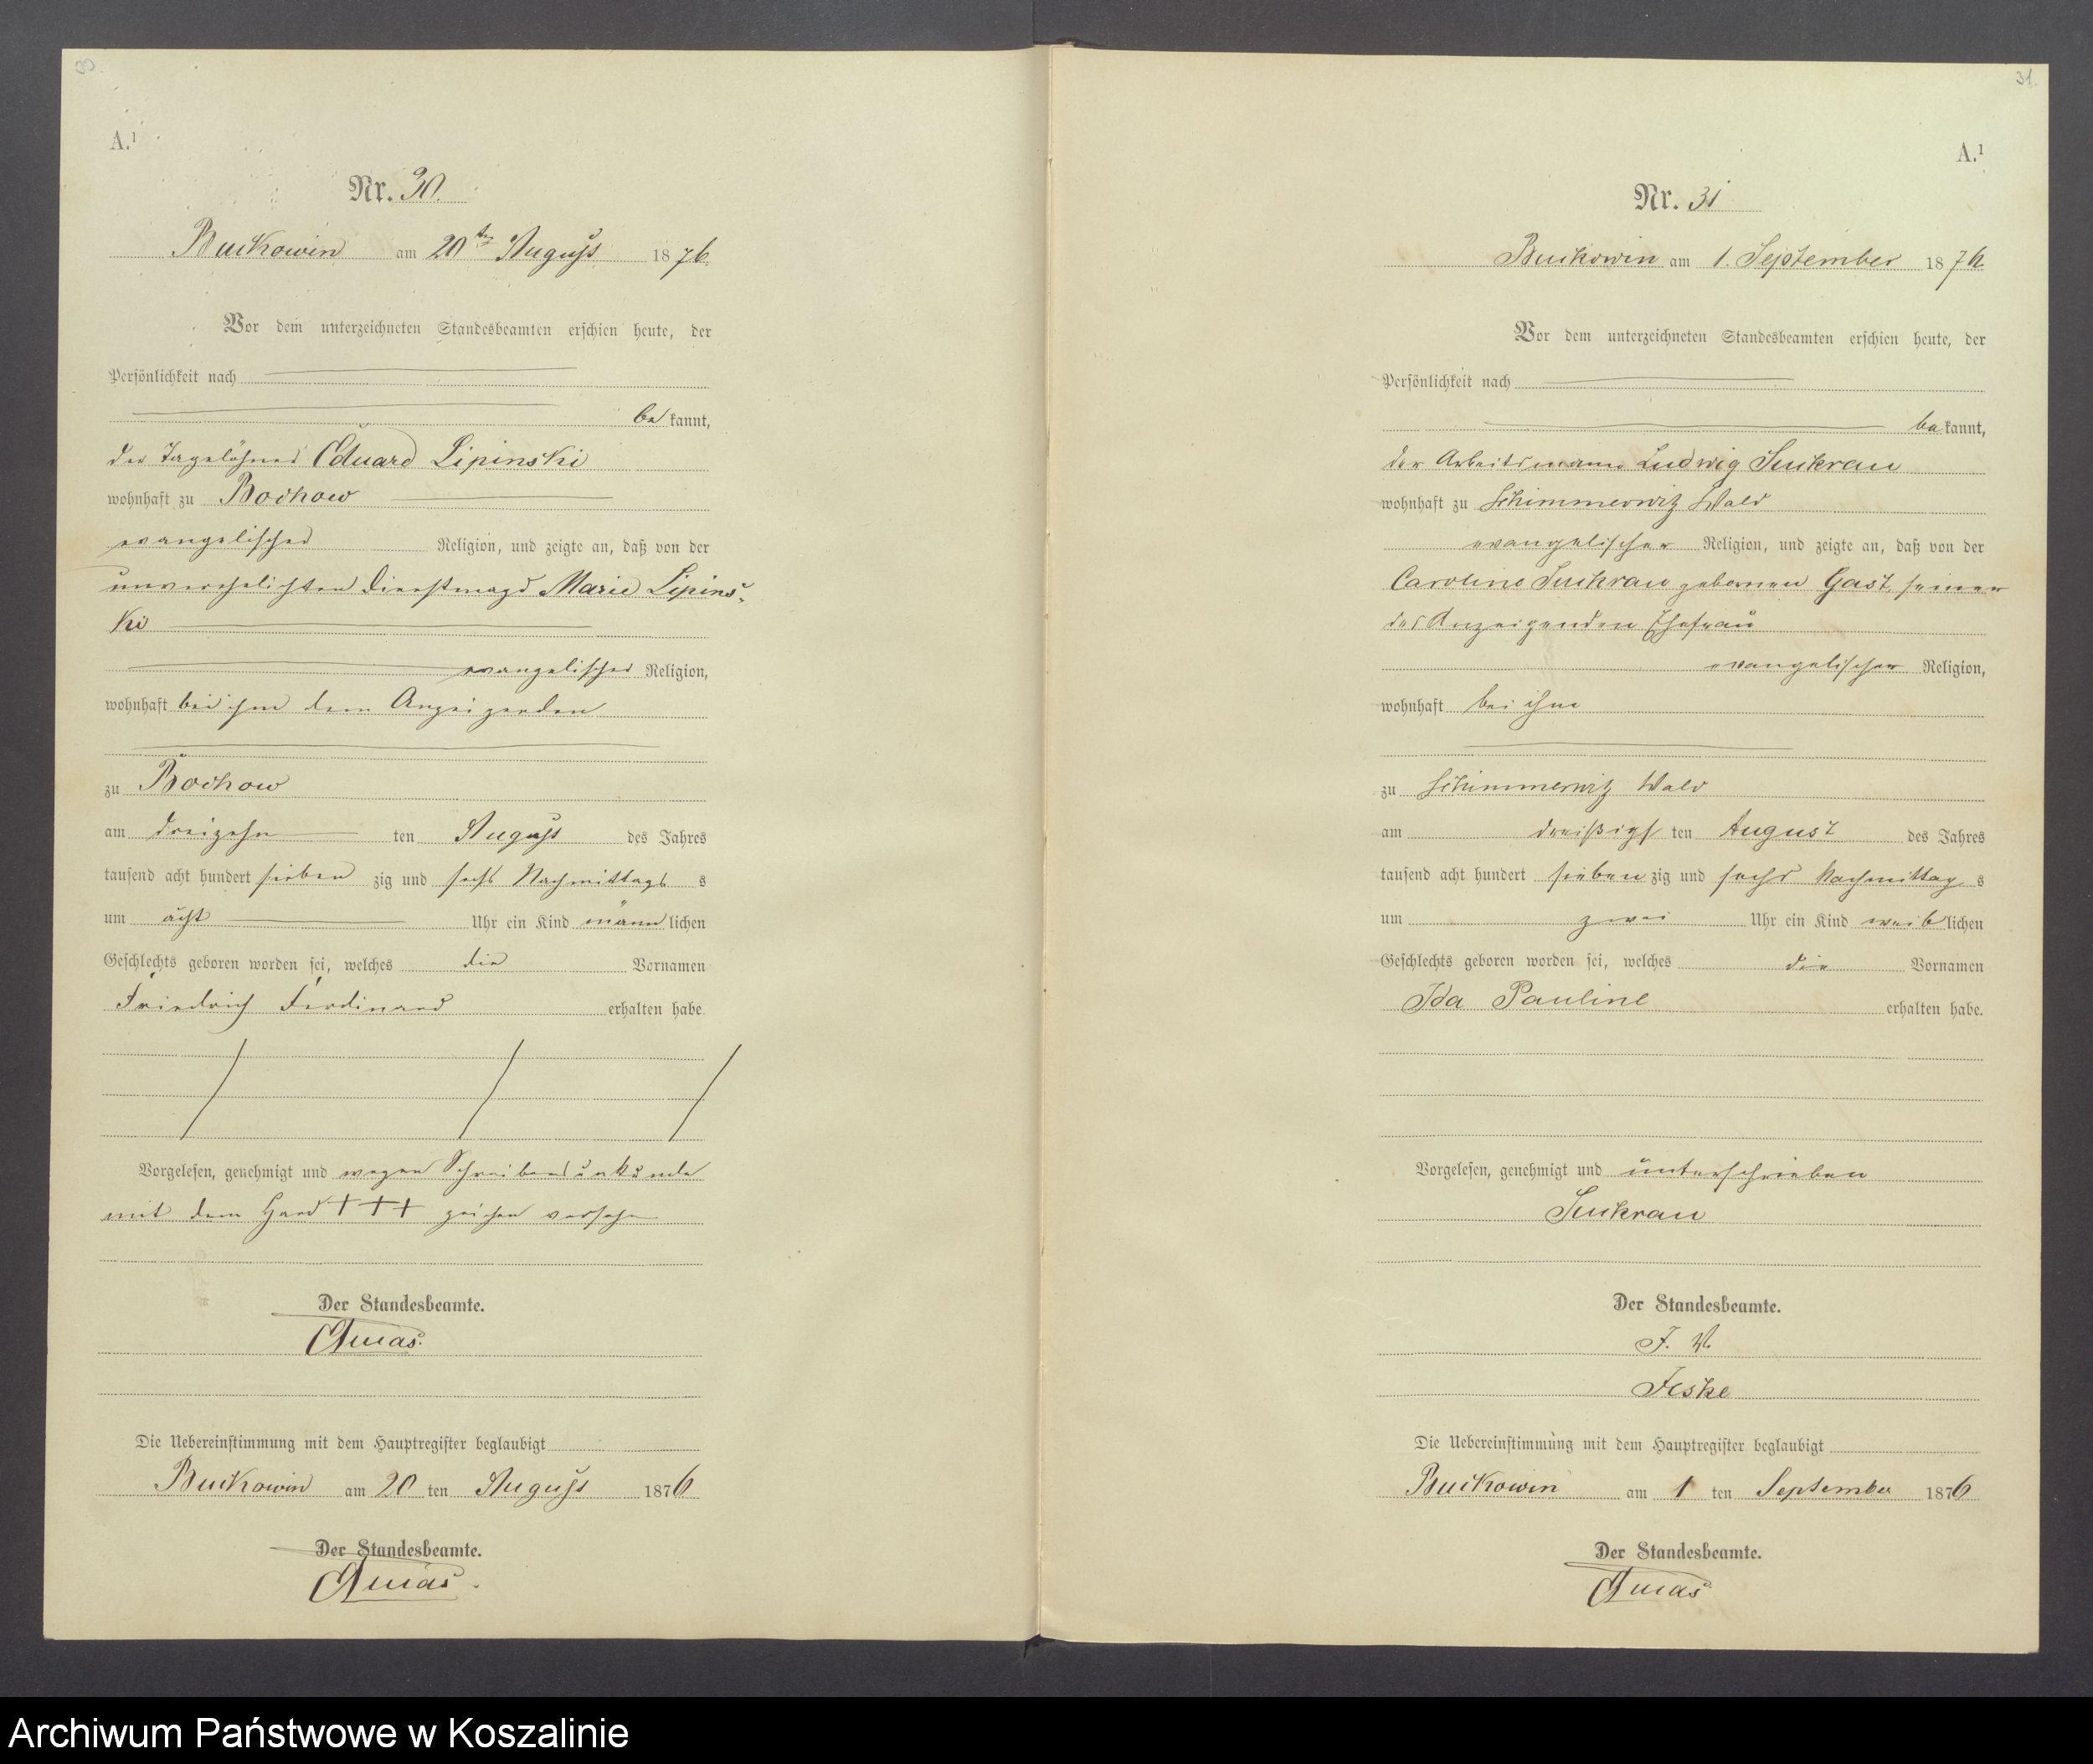 30
A.¹
Nr. 30.
Buckowin am 20ten August 1876.
Vor dem unterzeichneten Standesbeamten erschien heute, der
Persönlichkeit nach
bekannt,
der Tagelöhner Eduard Lipinski
wohnhaft zu Bochow
evangelischer Religion, und zeigte an, daß von der
unverehelichten Dienstmagd Marie Lipins-
ki
evangelischer Religion,
wohnhaft bei ihm dem Anzeigenden
zu Bochow
am dreizehn ten August des Jahres
tausend acht hundert sieben zig und sechs Nachmittags s
um acht Uhr ein Kind männlichen
Geschlechts geboren worden sei, welches die Vornamen
Friedrich Ferdinand erhalten habe.
Vorgelesen, genehmigt und wegen Schreibensunkunde
mit dem Hand +++ zeichen versehn
Der Standesbeamte.
Die Uebereinstimmung mit dem Hauptregister beglaubigt
Buckowin am 20 ten August 1876
Der Standesbeamte.
31.
A.¹
Nr. 31
Buckowin am 1. September 1876
Vor dem unterzeichneten Standesbeamten erschien heute, der
Persönlichkeit nach
bekannt,
der Arbeitsmann Ludwig Suckrau
wohnhaft zu Schimmerwitz Wald
evangelischer Religion, und zeigte an, daß von der
Caroline Suckrau gebornen Gast, seiner
des Anzeigenden Ehefrau
evangelischer Religion,
wohnhaft bei ihm
zu Schimmerwitz Wald
am dreißigst ten August des Jahres
tausend acht hundert sieben zig und sechs Nachmittag s
um zwei Uhr ein Kind weiblichen
Geschlechts geboren worden sei, welches die Vornamen
Ida Pauline erhalten habe.
Vorgelesen, genehmigt und unterschrieben
Suckrau
Der Standesbeamte.
J. V.
Jeske
Die Uebereinstimmung mit dem Hauptregister beglaubigt
Buckowin am 1 ten September 1876
Der Standesbeamte.
Archiwum Państwowe w Koszalinie